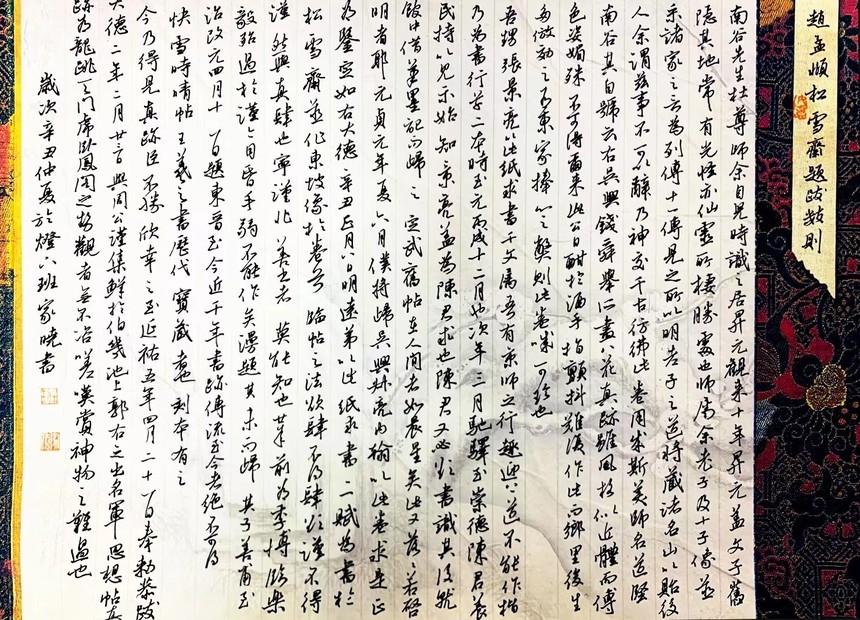 趙孟頫松雪齋題跋數則
南谷先生杜尊師余自兒時識之居昇元觀來十年昇元蓋文子舊
隱其地常有光怪亦仙靈所棲勝處也師屬余老子及十子像并
示諸家之言為列傳十一傳見之所以明老子之道將藏諸名山以貽後
人余謂茲事不可辭乃神交千古彷彿此卷用成斯美師名道堅
南谷其自號云右吳興錢舜舉所畫八花真跡雖風格似近體而傅
色姿媚殊不可得爾來此公日酣於酒手指顫抖難復作此而鄉里後生
多倣効之有東家捧心之弊則此卷誠可珍也
吾甥張景亮以此紙求書千文屬吾有京師之行趣迎上道不能作楷
乃為書行草二本時至元丙戌十二月也次年三月馳驛至崇德陳君養
民持以見示始知景亮蓋為陳君求也陳君又必欲書識其後就
皎中借筆墨記而歸之定武舊帖在人間者如晨星矣此又落落若啓
明者耶元貞元年夏六月僕將歸吳興孫亮內翰以此卷求是正
為鑒定如右大德辛丑正月八日明遠弟以此紙求書二賦為書於
松雪齋并作東坡像於卷首臨帖之法欲肆不得肆欲謹不得
謹然與其肆也寧謹非善書者莫能知也廿年前為季博臨樂
毅殆過於謹今目昏手弱不能作矣漫題其末而歸其子善甫至
治改元四月十一日題東晉至今近千年書跡傳流至今者絕不可得
快雪時晴帖王羲之書歷代寶藏者也刻本有之
今乃得見真跡臣不勝欣幸之至延祐五年四月二十一日奉勅恭跋
大德二年二月廿三日與周公謹集鮮于伯幾池上郭右之出右軍思想帖真
跡有龍跳天門虎臥鳳閣之勢觀者無不咨嗟嘆賞神物之難遇也
歲次辛丑仲夏於燈下班家曉書